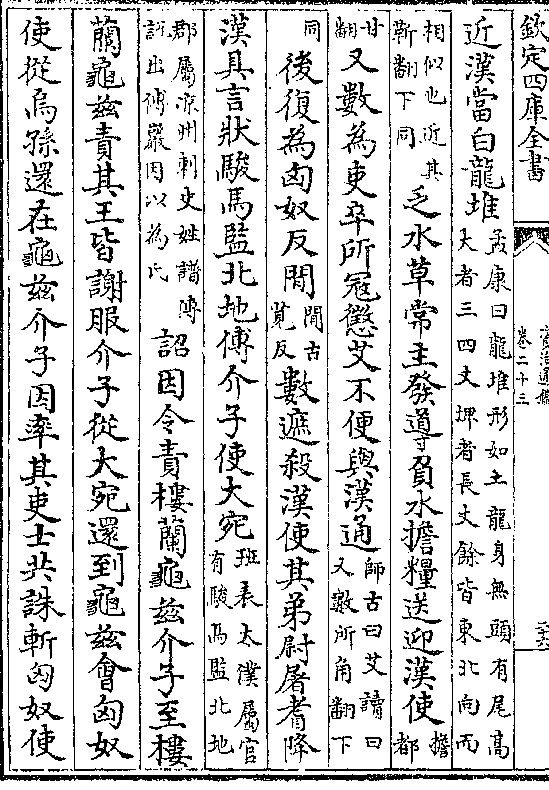 欽定四庫全書
資治通鑑
卷二十三
近漢當白龍堆孟康曰龍堆形如土龍身無頭有尾高大者三四丈埤者長丈餘皆東北向而
相似也近其靳翻下同乏水草常主發導負水擔糧送迎漢使擔都
甘翻又數為吏卒所冦懲艾不便與漢通師古曰艾讀曰乂數所角翻下
同後復為匈奴反閒閒古莧反數遮殺漢使其弟尉屠耆降
漢具言狀駿馬監北地傅介子使大宛班表太僕屬官有駿馬監北地
郡屬涼州刺史姓譜傅說出傅巖因以為氏詔因令責樓蘭龜兹介子至樓
蘭龜兹責其王皆謝服介子從大宛還到龜兹會匈奴
使從烏孫還在龜兹介子因率其吏士共誅斬匈奴使